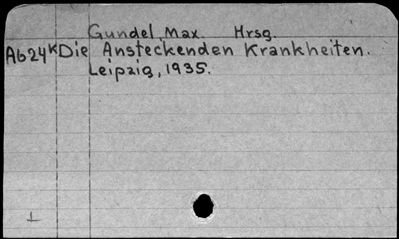 Gundel, Max. Hrsg.
Ab24K Die Ansteckenden Krankheiten.
Leipzig, 1935.